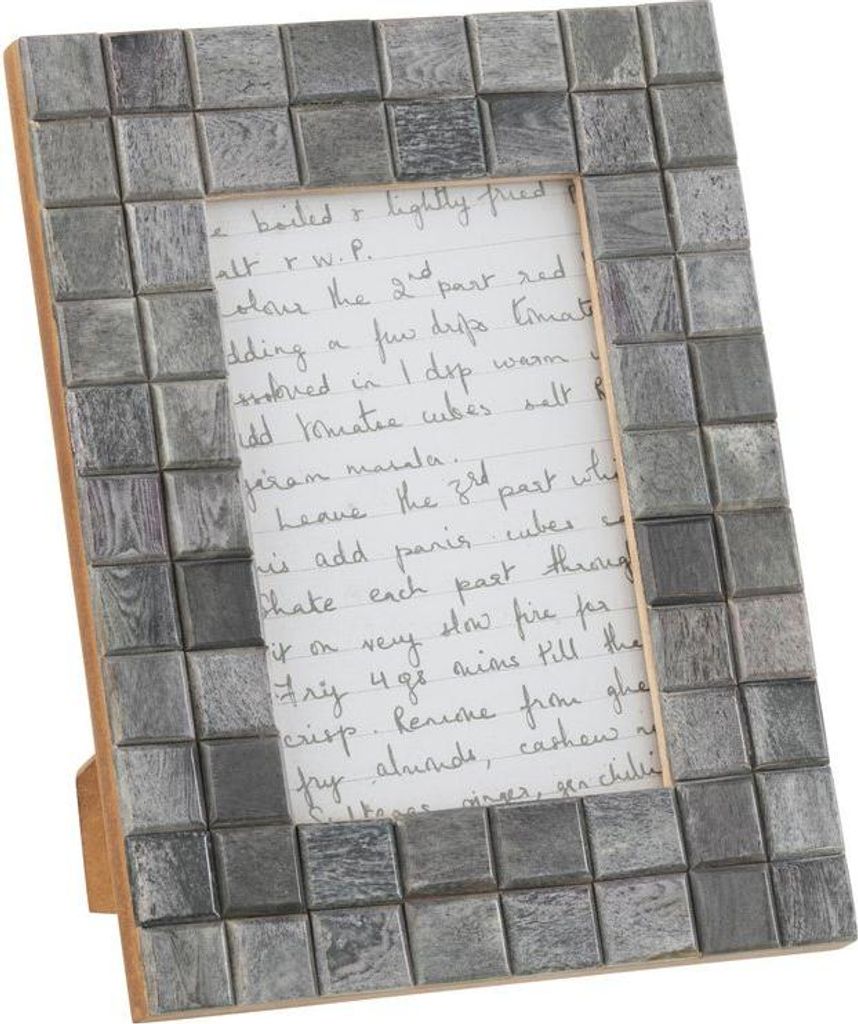 e boiled & lightly fried
alt & W.P.
olour the 2nd part red
dding a few drops tomato
ssolved in 1 dsp warm
dd tomatoe cubes salt
garam masala.
Leave the 3rd part whi
is add panis cubes
Shake each part throug
it on very slow fire for
Fry 4 gs mins till the
crisp. Remove from ghe
fry almonds, cashew n
Sultanas ginger, grn chilli